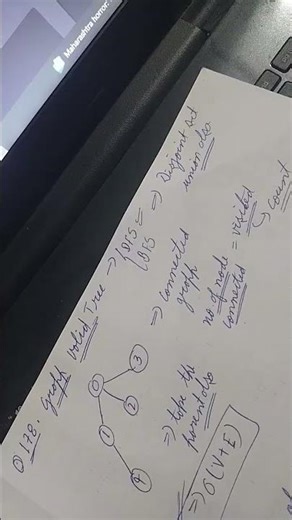 Maharashtra horror:
Q 178. Graph Valid Tree → { BFS
{ DFS
⇒ Disjoint set
union also
⇒ connected
graph
no of node = visited
connected
↳ count
0
3
2
1
4
⇒ take the
parent also
⇒ O(V+E)